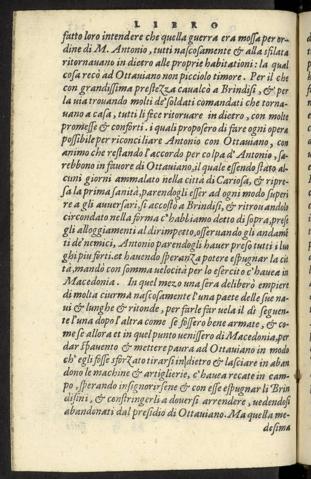 LIBRO
fatto loro intendere che quella guerra era mossa per or-
dine di M. Antonio, tutti nascosamente & alla sfilata
ritornauano in dietro alle proprie habitationi: la qual
cosa recò ad Ottauiano non picciolo timore. Per il che
con grandissima prestezza caualcò a Brindisi, & per
la uia trouando molti de' soldati comandati che torna-
uano a casa, tutti li fece ritornare in dietro, con molte
promesse & conforti. i quali proposero di fare ogni opera
possibile per riconciliare Antonio con Ottauiano, con
animo che restando l'accordo per colpa d'Antonio, sa-
rebbono in fauore di Ottauiano, il quale essendo stato al-
cuni giorni ammalato nella città di Cariosa, & ripre-
sa la prima sanità, parendogli esser ad ogni modo superi
re a gli auuersari, si accostò a Brindisi, & ritrouandolo
circondato nella forma c'habbiamo detto di sopra, prese
gli alloggiamenti al dirimpetto, osseruando gli andamẽ
ti de' nemici, Antonio parendogli hauer preso tutti i luo
ghi piu forti, et hauendo speranza potere espugnar la cit
tà, mandò con somma uelocità per lo esercito c'hauea in
Macedonia. In quel mezo una sera deliberò empiere
di molta ciurma nascosamente l'una paete delle sue na-
ui & lunghe & ritonde, per farle far uela il dì seguen-
te l'una dopo l'altra come se fossero bene armate, & co-
me se allora et in quel punto uenissero di Macedonia, per
dar spauento & mettere paura ad Ottauiano in modo
ch' egli fosse sforzato tirarsi in dietro & lasciare in aban
dono le machine & artiglierie, c'hauea recate in cam-
po, sperando insignorirsene & con esse espugnar li Brin
disini, & constringerli a douersi arrendere, uedendosi
abandonati dal presidio di Ottauiano. Ma quella me-
desima